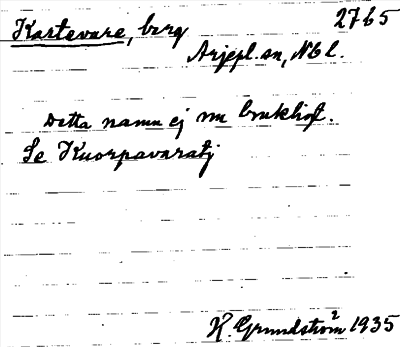 Kartevare, berg 2765
Arjepl. sn, Nb l.
Detta namn ej nu brukligt.
Se Kuorpavaratj
H. Grundström 1935